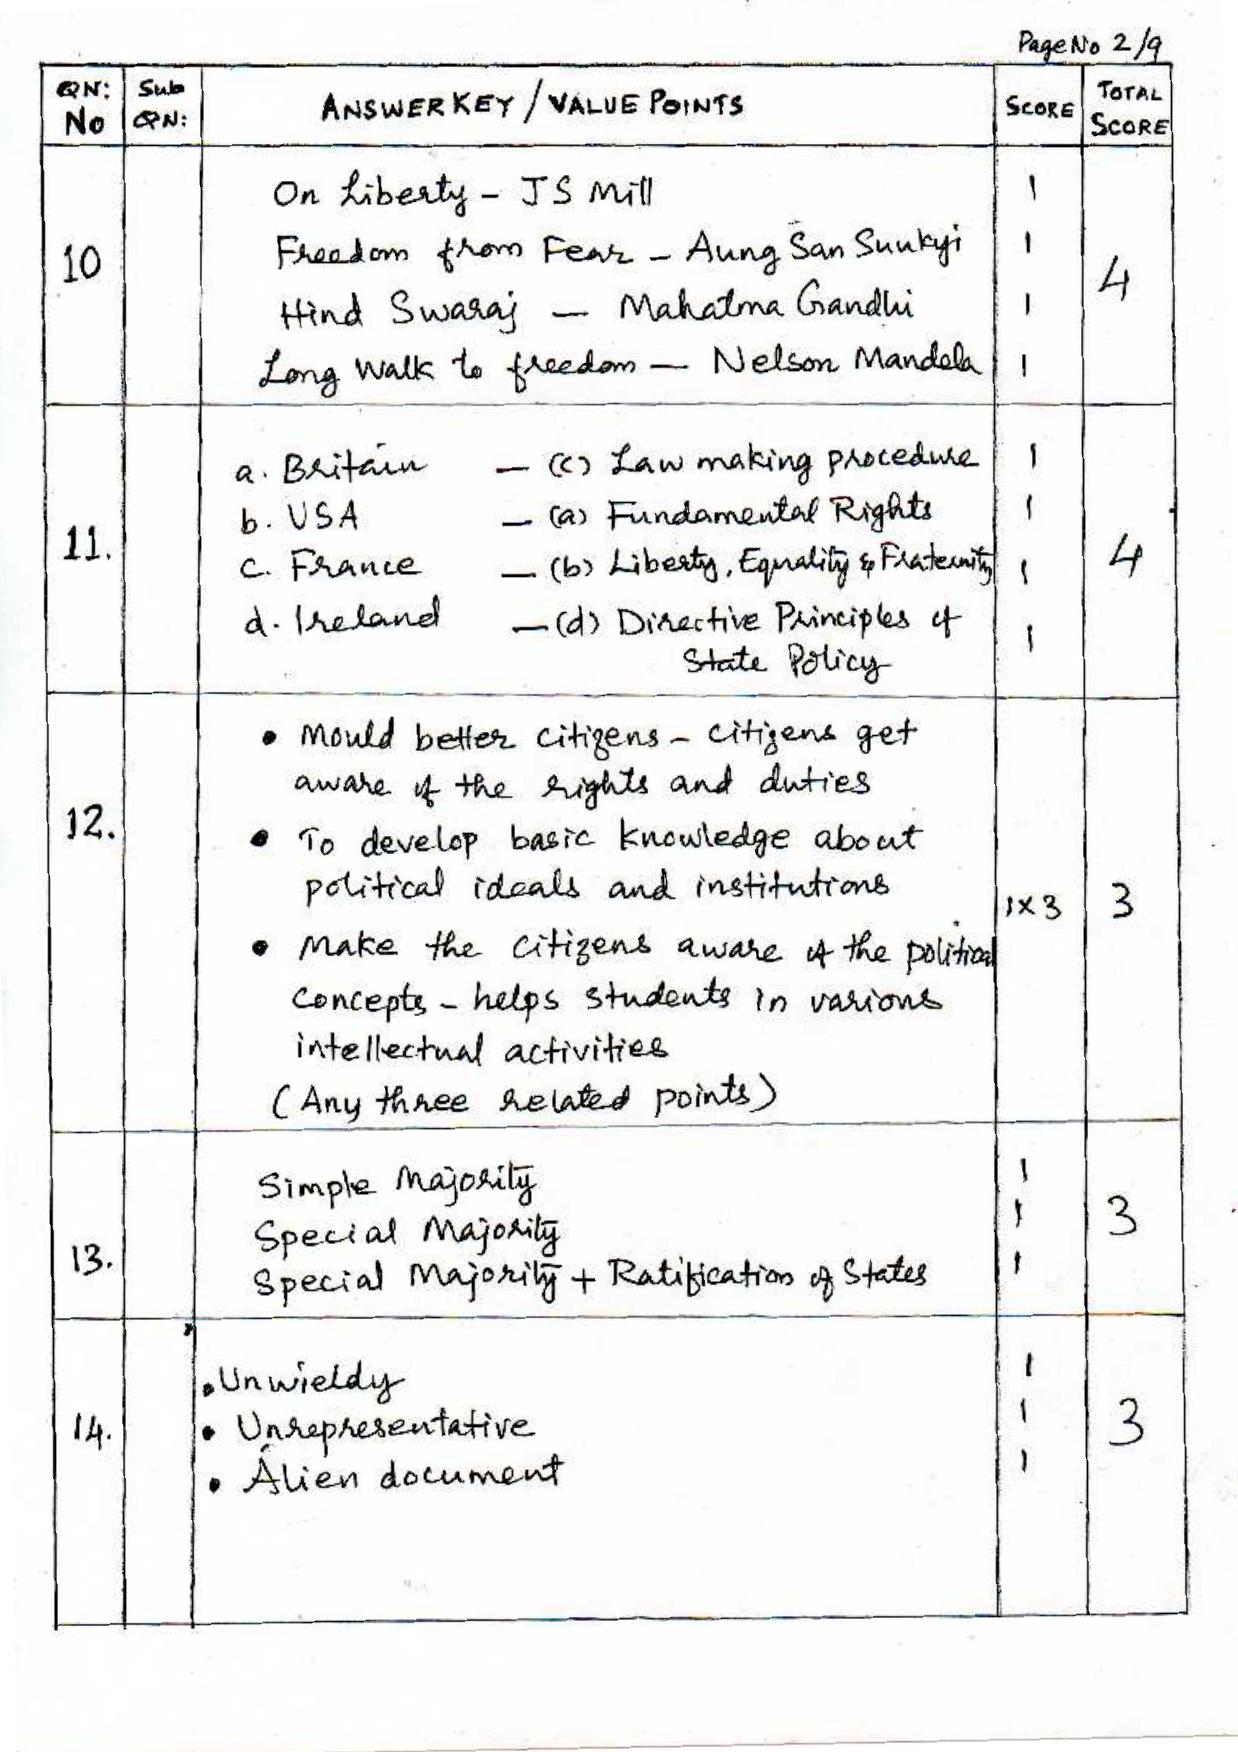 Page No 2/9
QN: No
Sub QN:
ANSWER KEY / VALUE POINTS
SCORE
TOTAL SCORE
10
On Liberty - JS Mill 1
Freedom from Fear - Aung San Suukyi 1
Hind Swaraj - Mahatma Gandhi 1
Long Walk to freedom - Nelson Mandela 1
4
11.
a. Britain - (c) Law making procedure 1
b. USA - (a) Fundamental Rights 1
c. France - (b) Liberty, Equality & Fraternity 1
d. Ireland - (d) Directive Principles of
State Policy 1
4
12.
• Mould better citizens - citizens get
aware of the rights and duties
• To develop basic knowledge about
political ideals and institutions
• Make the citizens aware of the political
concepts - helps students in various
intellectual activities
(Any three related points)
1x3
3
13.
Simple Majority 1
Special Majority 1
Special Majority + Ratification of States 1
3
14.
• Unwieldy 1
• Unrepresentative 1
• Alien document 1
3